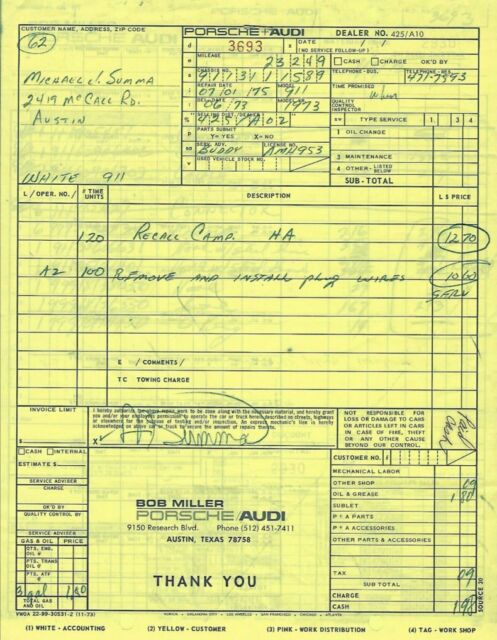 CUSTOMER NAME, ADDRESS, ZIP CODE
62
Michael J. Summa
2419 McCall Rd.
Austin
White 911
PORSCHE+AUDI DEALER NO. 425/A10
3693
DATE / /
(NO SERVICE FOLLOW-UP)
MILEAGE
23249
CASH CHARGE OK'D BY
CHASSIS NO.
9113111589
TELEPHONE-BUS. TELEPHONE-RES.
477-7593
REPAIR DATE MODEL
07 01 75 911
TIME PROMISED
When
DEL. DATE
06 73 1973
QUALITY CONTROL INSPECTOR
SELLING DIST./DEALER
425/A02
SV TYPE SERVICE 1 3 4
PARTS SUBMIT
Y= YES X= NO
1 OIL CHANGE
SERV. ADV. LICENSE NO.
Buddy AMH953
USED VEHICLE STOCK NO.
3 MAINTENANCE
4 OTHER-LISTED BELOW
SUB-TOTAL
L / OPER. NO./ # TIME UNITS DESCRIPTION L $ PRICE
120 Recall Camp. HA 1270
A2 100 Remove and install plug wires 1060
Serv
E / COMMENTS /
TC TOWING CHARGE
INVOICE LIMIT
$
I hereby authorize the above repair work to be done along with the necessary material, and hereby grant
you and/or your employees permission to operate the car or truck herein described on streets, highways
or elsewhere for the purpose of testing and/or inspection. An express mechanic's lien is hereby
acknowledged on above car or truck to secure the amount of repairs thereto.
X Summa
NOT RESPONSIBLE FOR LOSS OR DAMAGE TO CARS OR ARTICLES LEFT IN CARS IN CASE OF FIRE, THEFT OR ANY OTHER CAUSE BEYOND OUR CONTROL.
Paid Cash
CASH INTERNAL
CUSTOMER NO.
ESTIMATE $
SERVICE ADVISER
CHARGE
OK'D BY
QUALITY CONTROL BY
SERVICE ADVISER
GAS & OIL PRICE
QTS. ENG. OIL @
PTS. TRANS OIL @
PTS. ATF @
3 gal 1.80
TOTAL GAS AND OIL
BOB MILLER
PORSCHE/AUDI
9150 Research Blvd. Phone (512) 451-7411
AUSTIN, TEXAS 78758
THANK YOU
MECHANICAL LABOR
OTHER SHOP 09
OIL & GREASE 1 80
SUBLET
P + A PARTS
P + A ACCESSORIES
OTHER PARTS & ACCESSORIES
TAX 09
SUB TOTAL
CHARGE
CASH 198
SOURCE 20
VWOA 22-99-30531-2 (11-73)
(1) WHITE - ACCOUNTING (2) YELLOW - CUSTOMER (3) PINK - WORK DISTRIBUTION (4) TAG - WORK SHOP